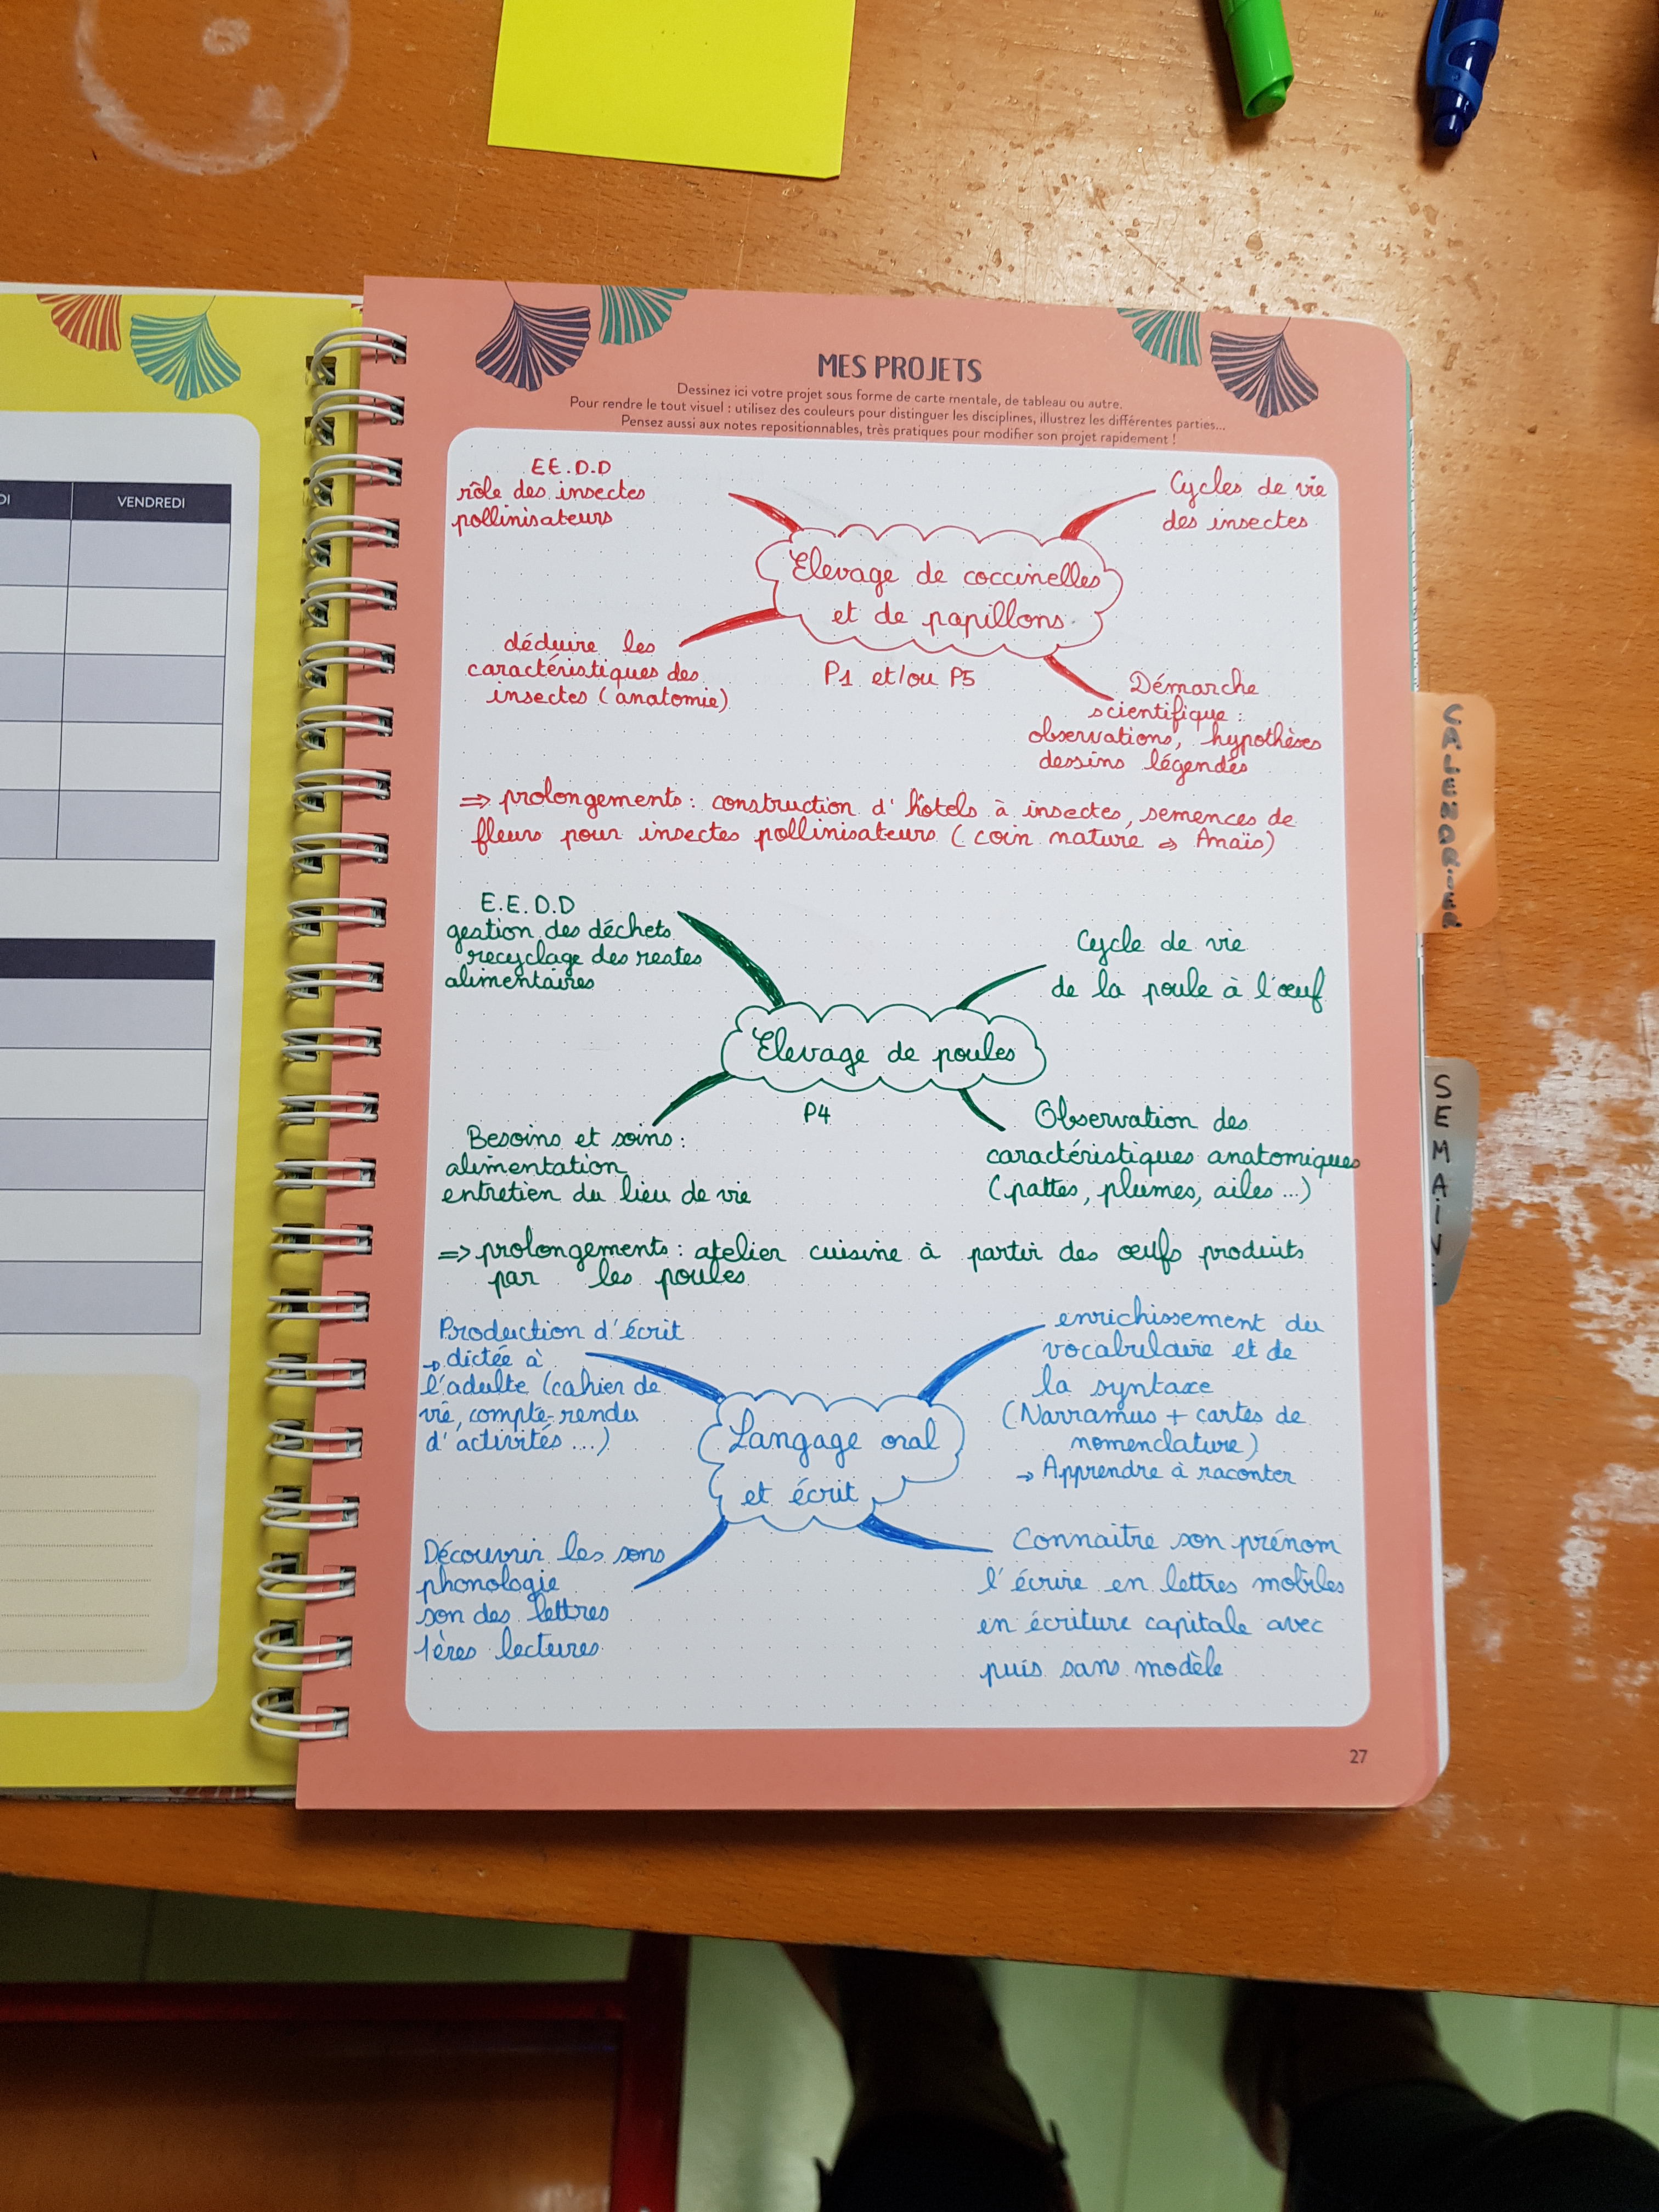 DI
VENDREDI
MES PROJETS
Dessinez ici votre projet sous forme de carte mentale, de tableau ou autre.
Pour rendre le tout visuel : utilisez des couleurs pour distinguer les disciplines, illustrez les différentes parties...
Pensez aussi aux notes repositionnables, très pratiques pour modifier son projet rapidement !
E.E.D.D
rôle des insectes
pollinisateurs
Cycles de vie
des insectes
Elevage de coccinelles
et de papillons
P1 et/ou P5
déduire les
caractéristiques des
insectes (anatomie)
Démarche
scientifique :
observations, hypothèses
dessins légendés
⇒ prolongements : construction d'hôtels à insectes, semences de
fleurs pour insectes pollinisateurs (coin nature ⇒ Anaïs)
E.E.D.D
gestion des déchets
recyclage des restes
alimentaires
Cycle de vie
de la poule à l'œuf
Elevage de poules
P4
Besoins et soins :
alimentation
entretien du lieu de vie
Observation des
caractéristiques anatomiques
(pattes, plumes, ailes ...)
⇒ prolongements : atelier cuisine à partir des œufs produits
par les poules
Production d'écrit
→ dictée à
l'adulte (cahier de
vie, compte-rendu
d'activités ...)
enrichissement du
vocabulaire et de
la syntaxe
(Narramus + cartes de
nomenclature)
→ Apprendre à raconter
Langage oral
et écrit
Découvrir les sons
phonologie
son des lettres
1ères lectures
Connaitre son prénom
l'écrire en lettres mobiles
en écriture capitale avec
puis sans modèle
27
SEMAIN